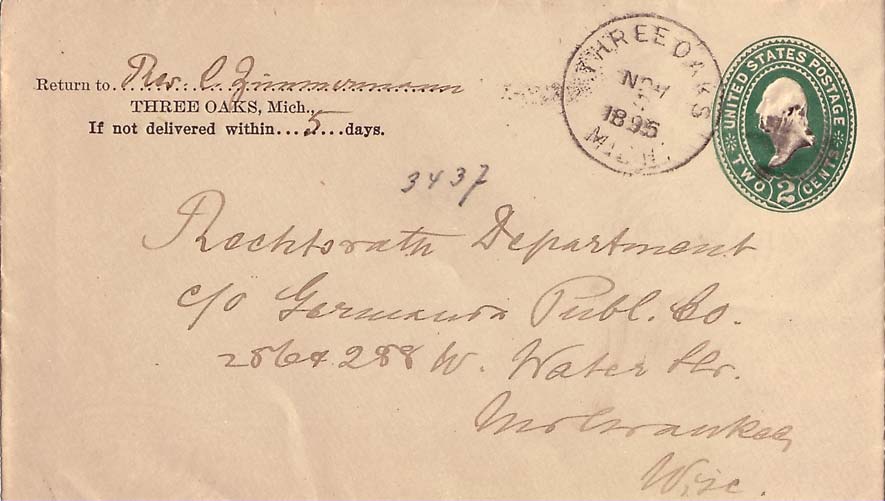 Return to Rev. C. Zimmermann
THREE OAKS, Mich.,
If not delivered within...5...days.
THREE OAKS
NOV
1895
MICH.
UNITED STATES POSTAGE
TWO 2 CENTS
3437
Rechtsrath Department
c/o Germania Publ. Co.
286 & 288 W. Water Str.
Milwaukee,
Wisc.